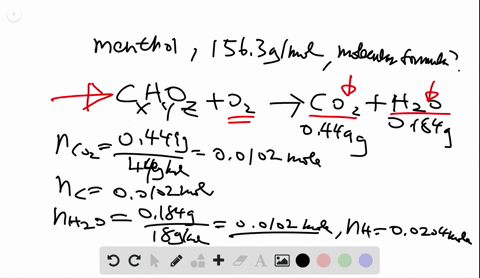 menthol, 156.3g/mol, molecular formula?
CxHyOz + O2 → CO2 + H2O
0.449g 0.184g
nCO2 = 0.449g / 44g/mol = 0.0102 mole
nC = 0.0102 mole
nH2O = 0.184g / 18g/mol = 0.0102 mole, nH = 0.0204 mole